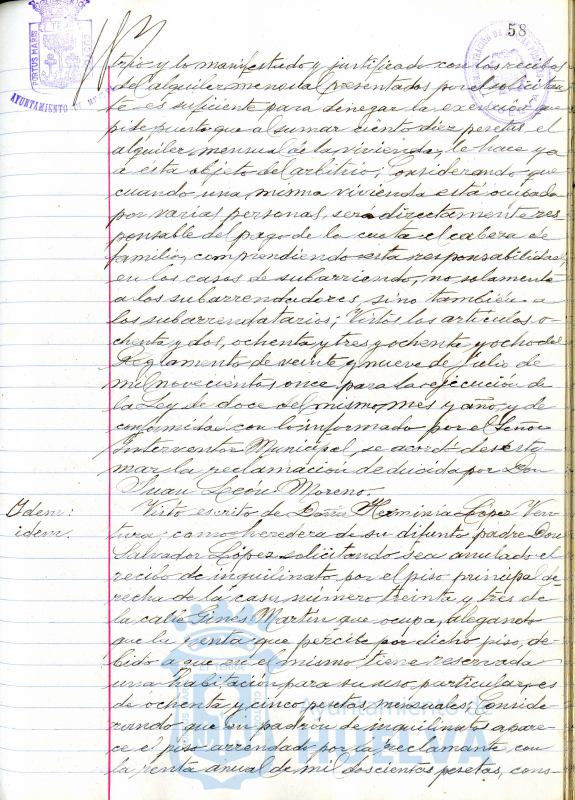 58
PORTUS MARIS
AYUNTAMIENTO DE
trio; y lo manifestado y justificado con los recibos
del alquiler mensual presentados por el solicitan
te es suficiente para denegar la exención que
pide puesto que al sumar ciento diez pesetas el
alquiler mensual de la vivienda, le hace ya
á esta objeto del arbitrio; Considerando que
cuando una misma vivienda está ocupada
por varias personas, será directamente res
ponsable del pago de la cuota el cabeza de
familia, comprendiendo esta responsabilidad,
en los casos de subarriendo, no solamente
a los subarrendadores, sino también a
los subarrendatarios; Vistos los artículos o-
chenta y dos, ochenta y tres y ochenta y ocho del
Reglamento de veinte y nueve de Julio de
mil novecientos once para la ejecución de
la Ley de doce del mismo mes y año, y de
conformidad con lo informado por el Señor
Interventor Municipal, se acordó desesti-
mar la reclamación deducida por Don
Juan León Moreno.
Idem:
idem.
Visto escrito de Doña Herminia López Ven
tura, como heredera de su difunto padre Don
Salvador López solicitando sea anulado el
recibo de inquilinato por el piso principal de
recha de la casa número treinta y tres de
la calle Ginés Martín que ocupa, alegando
que la renta que percibe por dicho piso, de-
bido a que en el mismo tiene reservada
una habitación para su uso particular, es
de ochenta y cinco pesetas mensuales; Conside
rando que en padrón de inquilinato apare-
ce el piso arrendado por la reclamante con
la renta anual de mil doscientas pesetas, cons-
Ayuntamiento de
HUELVA